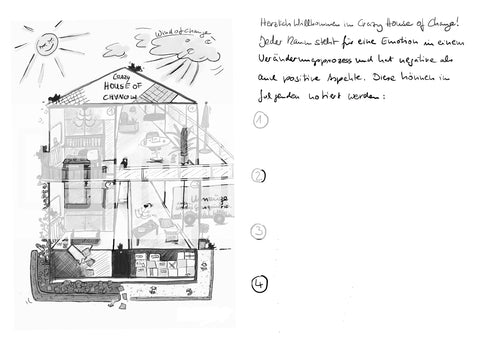 Wind of Change
Crazy
HOUSE OF
CHANGE
Herzlich Willkommen im Crazy House of Change!
Jeder Raum steht für eine Emotion in einem
Veränderungsprozess und hat negative als
auch positive Aspekte. Diese können im
folgenden notiert werden:
1
2
3
4